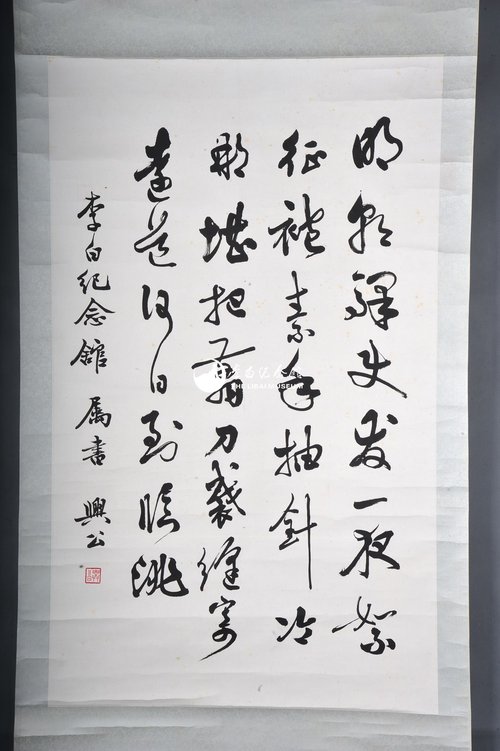 明朝驛使發一夜絮
征袍素手抽針冷
那堪把剪刀裁縫寄
遠道何日到臨洮
李白纪念館 属書 興公
李白纪念馆
THE LIBAI MUSEUM